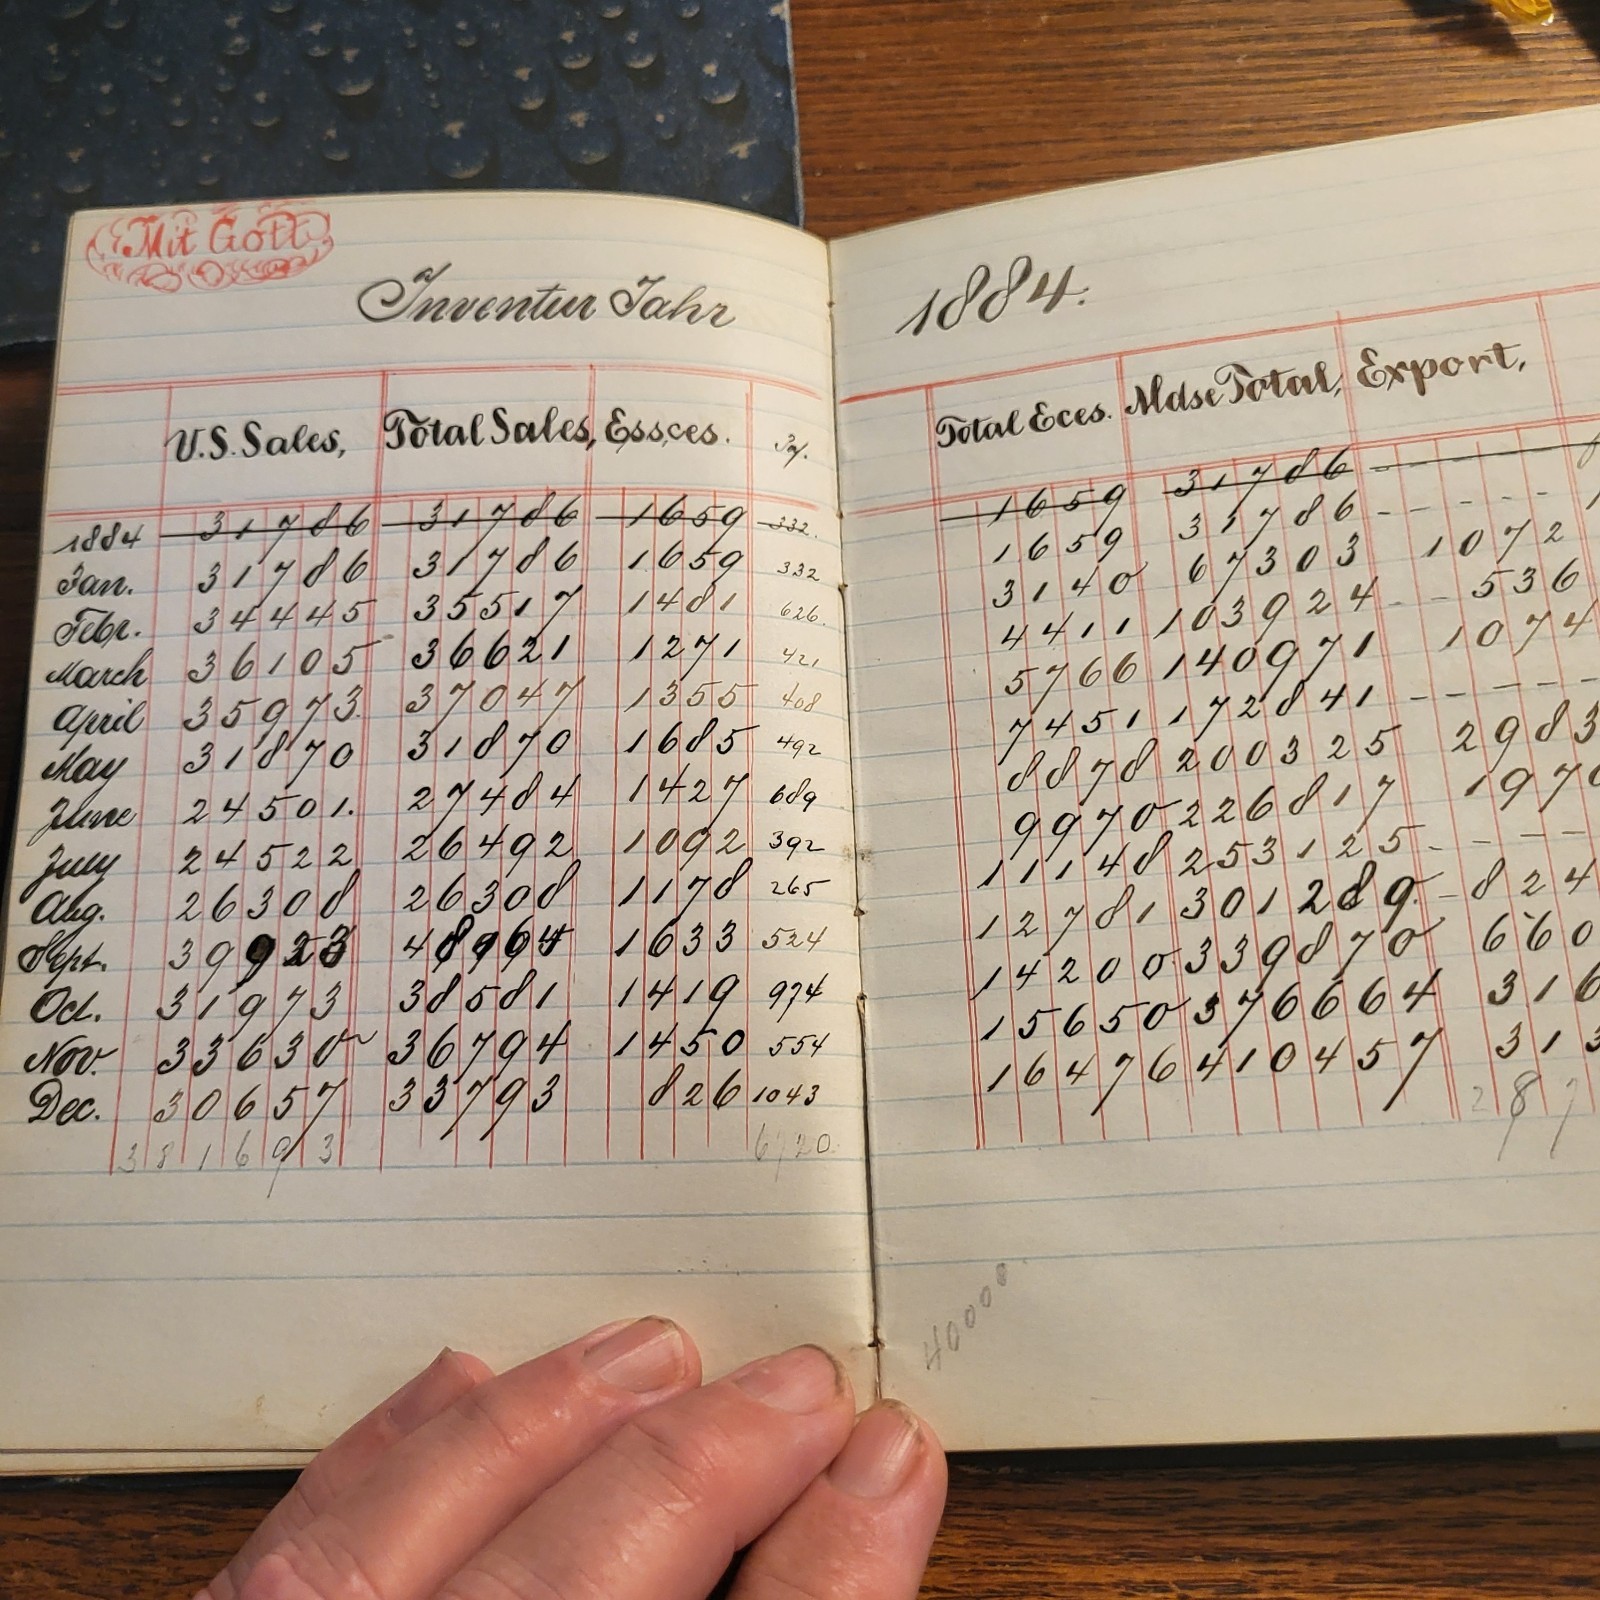 Mit Gott
Inventur Jahr 1884.
U.S. Sales, Total Sales, Essces. Total Eces. Mdse Total, Export,
1884 31786 31786 1659 332. 1659 31786
Jan. 31786 31786 1659 332 1659 31786 - - - - -
Febr. 34445 35517 1481 626. 3140 67303 1072
March 36105 36621 1271 421 4411 103924 - - 536
April 35973. 37047 1355 408 5766 140971 1074
May 31870 31870 1685 492 7451 172841 - - - - -
June 24501. 27484 1427 689 8878 200325 2983
July 24522 26492 1092 392 9970 226817 1970
Aug. 26308 26308 1178 265 11148 253125 - - - -
Sept. 39923 48964 1633 524 12781 301289. - 824
Oct. 31973 38581 1419 974 14200 339870 660
Nov. 33630 36794 1450 554 15650 376664 316
Dec. 30657 33793 826 1043 16476 410457 313
381693 6720. 287
40000